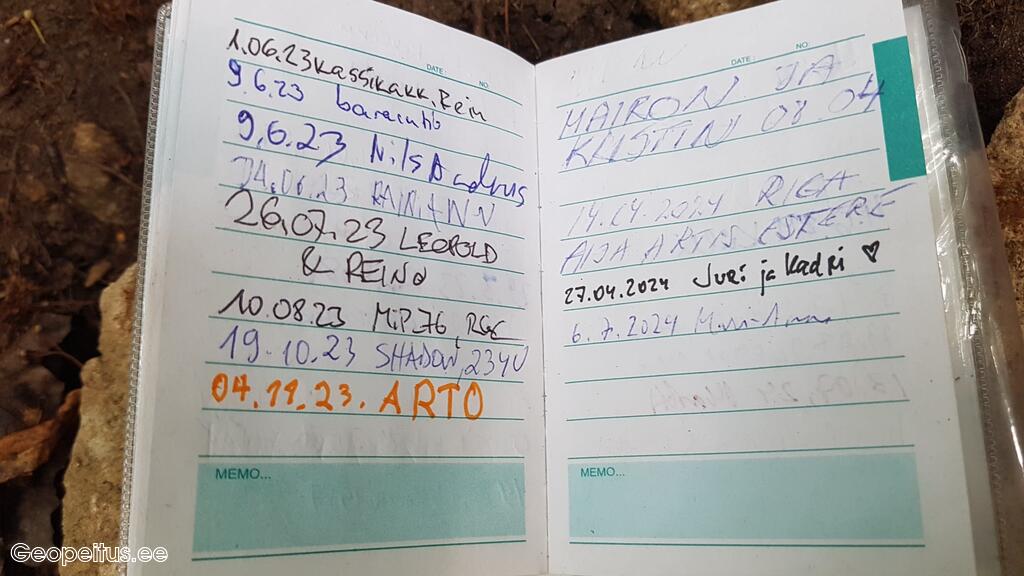 DATE: NO:
1.06.23 Kassikakk, Rein
9.6.23
9.6.23 Nils Andrus
26.07.23 LEOPOLD
& REINO
10.08.23 MiP_76,
19.10.23 SHADOW, 234U
04.11.23. ARTO
MEMO...
DATE: NO:
MAIRON JA
KRISTIN 08.04
14.04.2024 RIGA
AIJA ARTIS ESTERE
27.04.2024 Juri ja Kadri ♥
6.7.2024
MEMO...
Geopeitus.ee